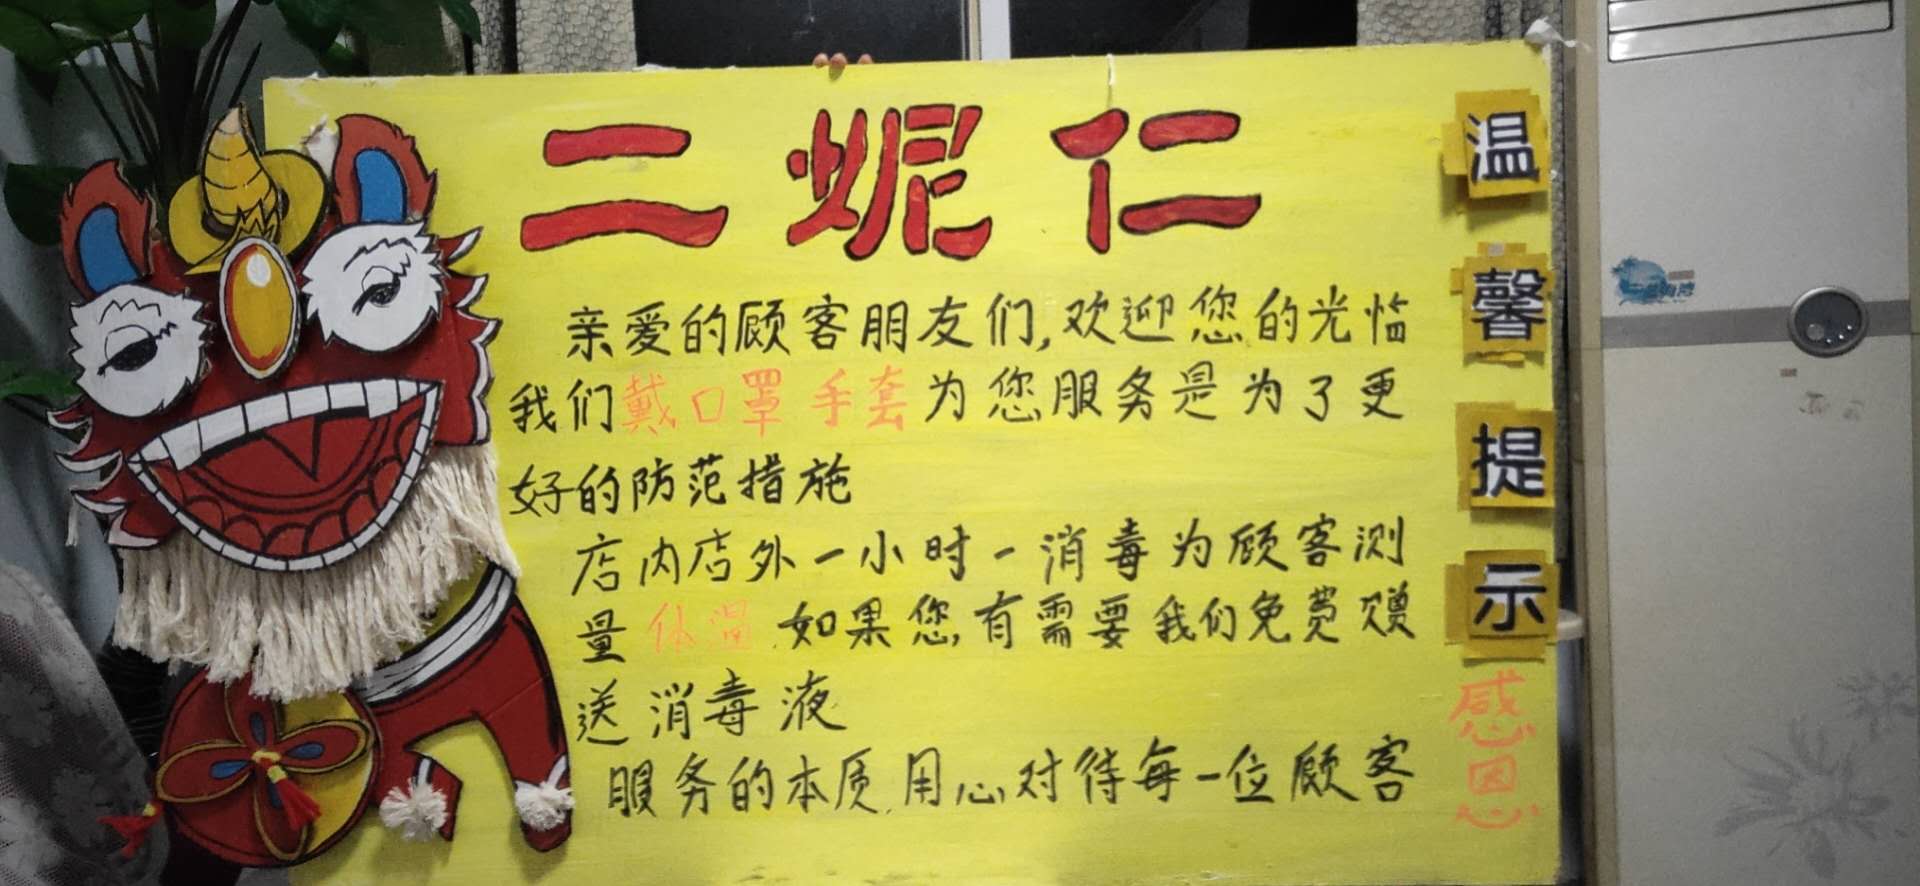 二妮仁
亲爱的顾客朋友们,欢迎您的光临
我们戴口罩手套为您服务是为了更
好的防范措施
店内店外一小时一消毒为顾客测
量体温 如果您,有需要我们免费赠
送消毒液
服务的本质,用心对待每一位顾客
温馨提示
感恩